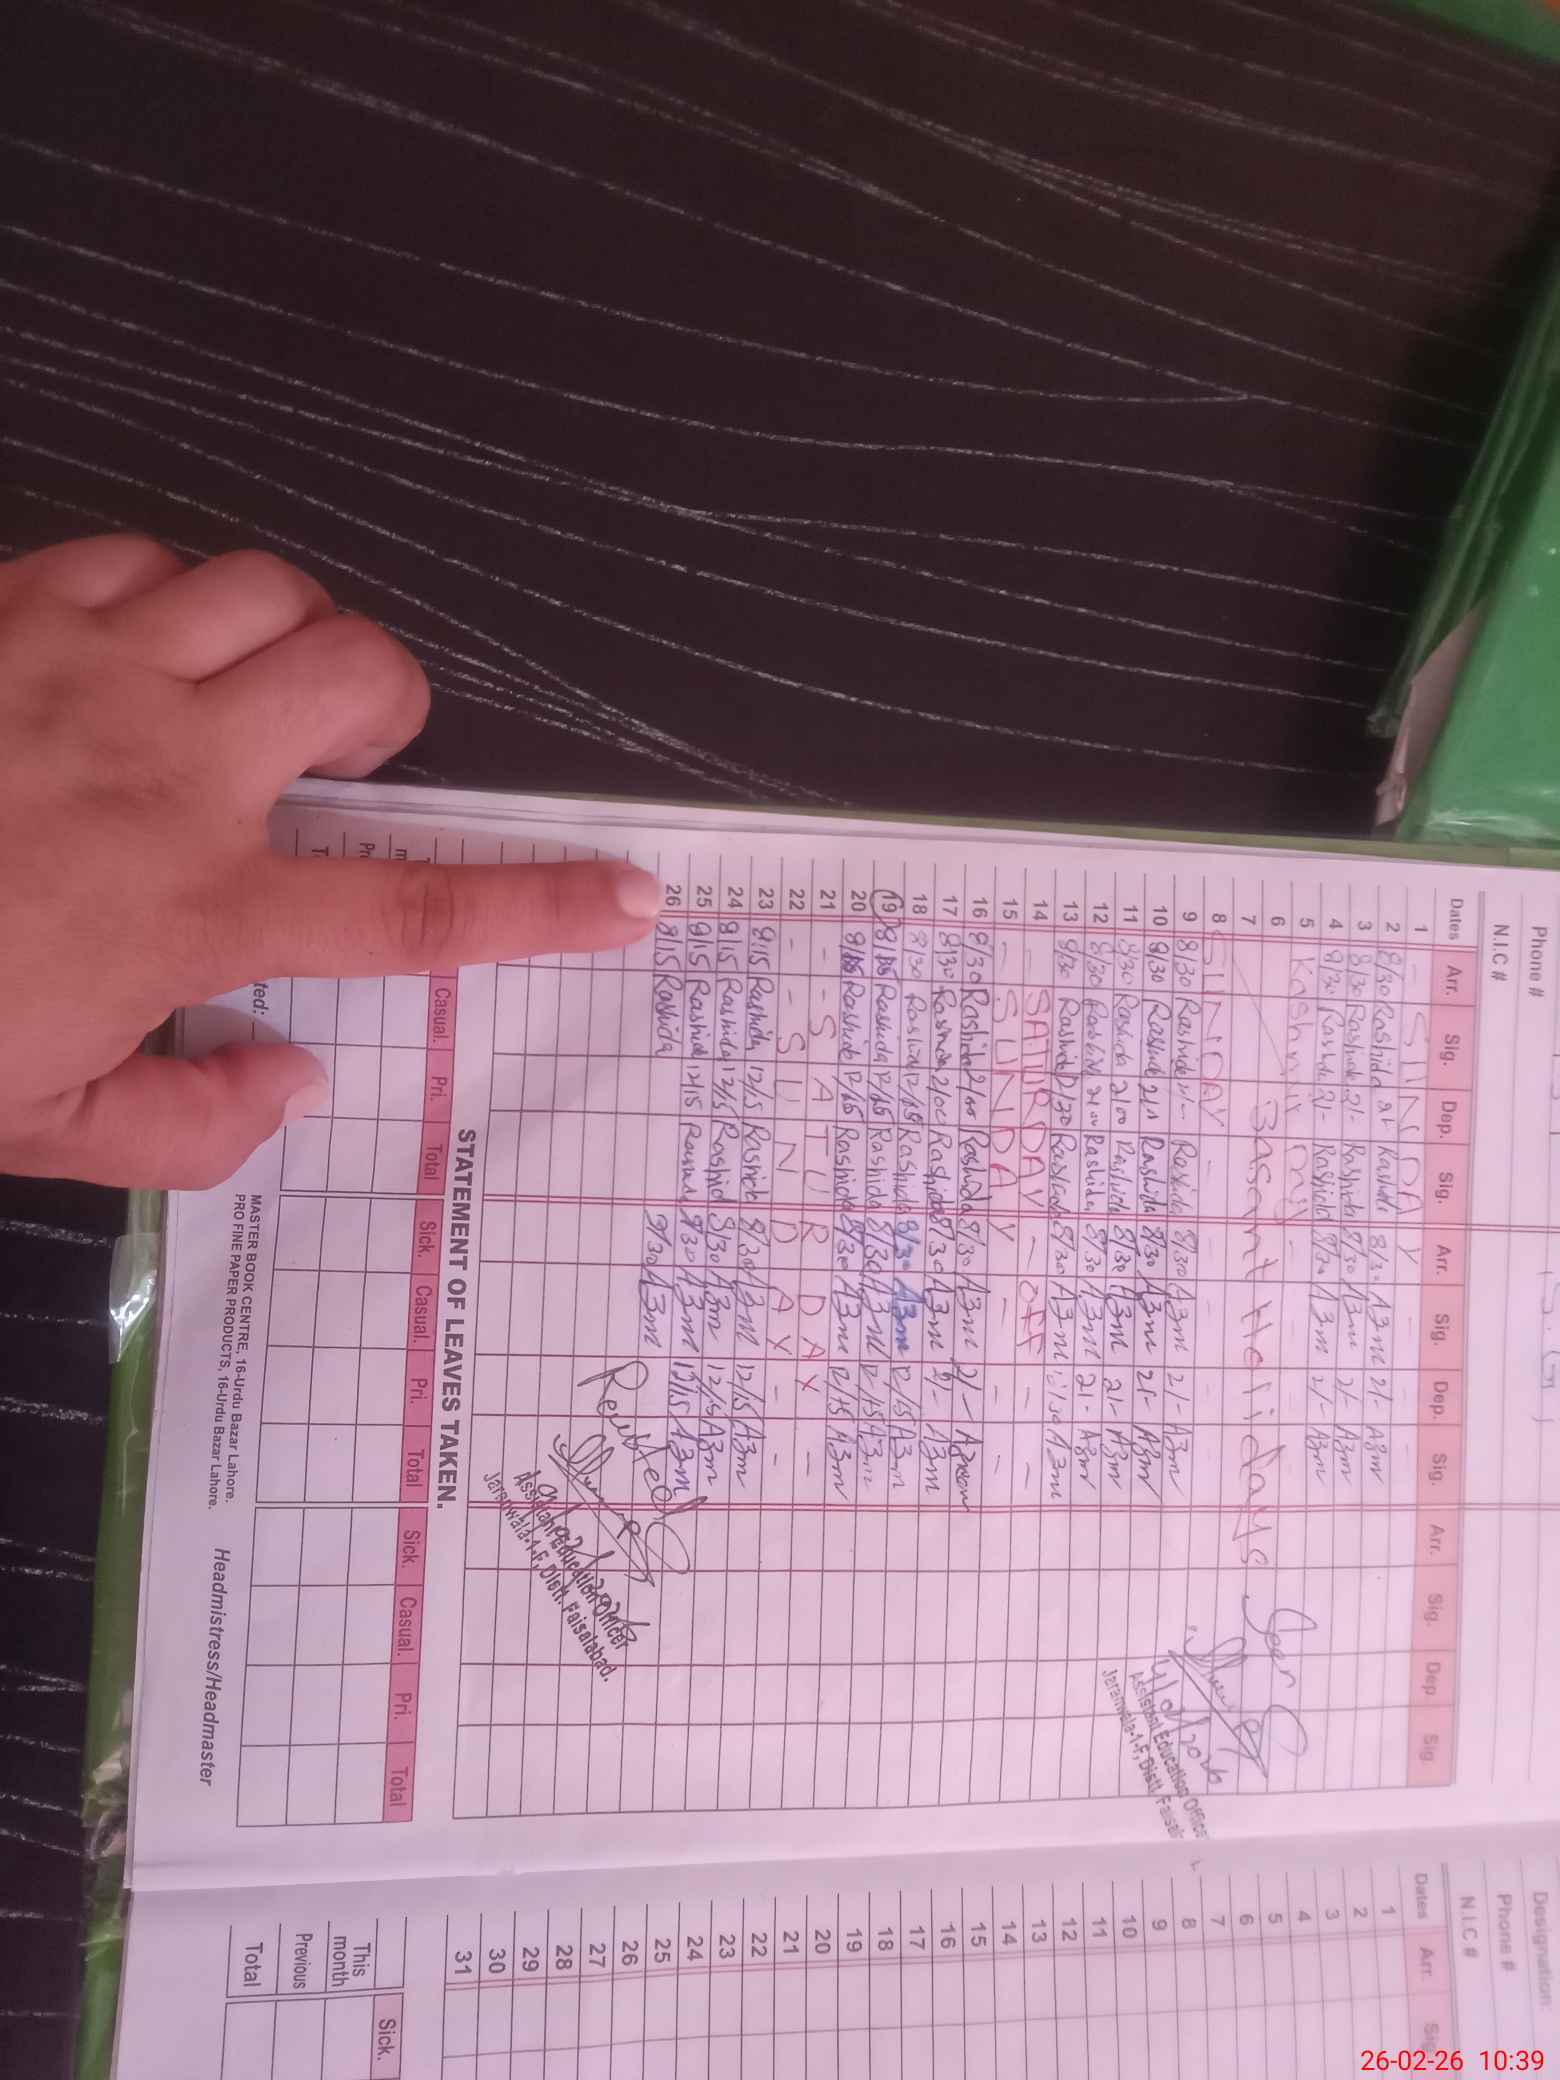 Phone #
N.I.C #
Dates Arr. Sig. Dep. Sig. Arr. Sig. Dep. Sig. Arr. Sig. Dep Sig.
1 - SUNDAY - -
2 8/30 Rashida 2/- Rashida 8/30 A3m 2/- A3m
3 8/30 Rashida 2/- Rashida 8/30 A3m 2/- A3m
4 8/30 Rashida 2/- Rashid 8/30 A3m 2/- A3m
5 Kashmir Day -
6 Basant Holidays
7
8 SUNDAY - -
9 8/30 Rashida 2/- Rashida 8/30 A3m 2/- A3m
10 8/30 Rashida 2/- Rashida 8/30 A3m 2/- A3m
11 8/30 Rashida 2/00 Rashida 8/30 A3m 2/- A3m
12 8/30 Rashida 2/00 Rashida 8/30 A3m 2/- A3m
13 8/30 Rashida 12/30 Rashida 8/30 A3m 12/30 A3m
14 - SATURDAY - OFF - -
15 - SUNDAY - - -
16 8/30 Rashida 2/00 Rashida 8/30 A3m 2/-
17 8/30 Rashida 2/00 Rashida 8/30 A3m 2/- A3m
18 8/30 Rashida 12/15 Rashida 8/30 A3m 12/15 A3m
19 8/15 Rashida 12/15 Rashida 8/30 A3m 12/15 A3m
20 8/15 Rashida 12/15 Rashida 8/30 A3m 12/15 A3m
21 - - SATURDAY - -
22 - - SUNDAY - -
23 8/15 Rashida 12/15 Rashida 8/30 A3m 12/15 A3m
24 8/15 Rashida 12/15 Rashid 8/30 A3m 12/15 A3m
25 8/15 Rashida 12/15 8/30 A3m 12/15 A3m
26 8/15 Rashida 8/30 A3m
Seen
Assistant Education Officer
Jaranwala-1-F, Distt. Faisal
Assistant Education Officer
Jaranwala-1-F, Distt. Faisalabad.
STATEMENT OF LEAVES TAKEN.
Casual. Pri. Total Sick. Casual. Pri. Total Sick. Casual. Pri. Total
ted:
MASTER BOOK CENTRE, 16-Urdu Bazar Lahore.
PRO FINE PAPER PRODUCTS, 16-Urdu Bazar Lahore.
Headmistress/Headmaster
Designation:
Phone #
N.I.C #
Dates Arr. Sig
1
2
3
4
5
6
7
8
9
10
11
12
13
14
15
16
17
18
19
20
21
22
23
24
25
26
27
28
29
30
31
Sick.
This month
Previous
Total
26-02-26 10:39